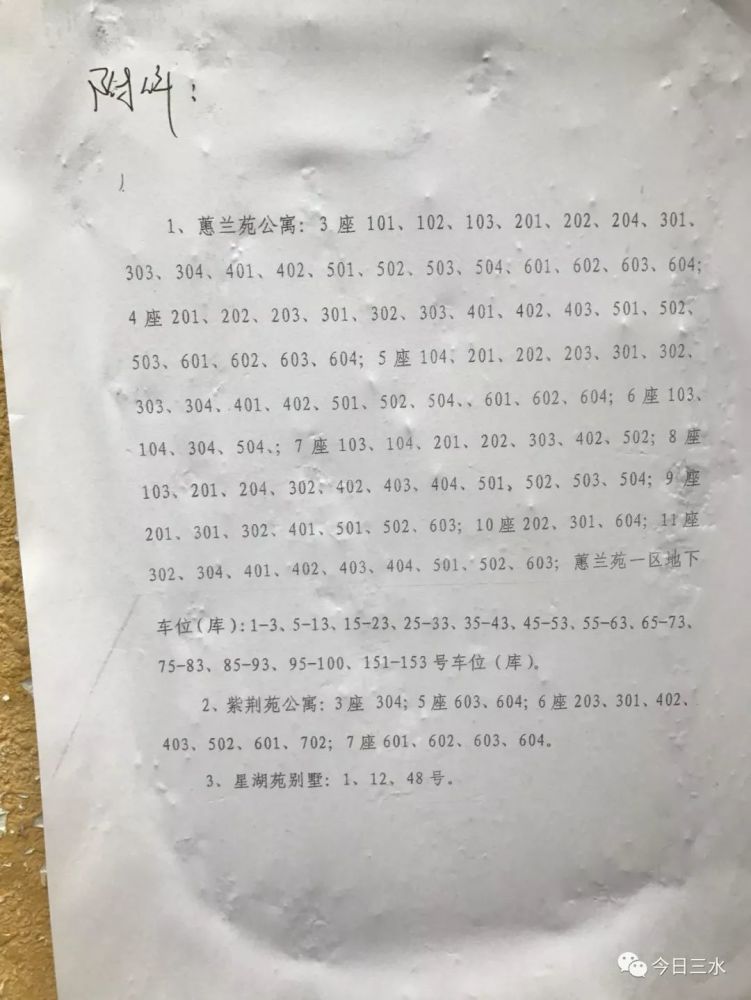 附件：
1、蕙兰苑公寓：3 座 101、102、103、201、202、204、301、
303、304、401、402、501、502、503、504、601、602、603、604；
4 座 201、202、203、301、302、303、401、402、403、501、502、
503、601、602、603、604；5 座 104、201、202、203、301、302、
303、304、401、402、501、502、504、、601、602、604；6 座 103、
104、304、504、；7 座 103、104、201、202、303、402、502；8 座
103、201、204、302、402、403、404、501、502、503、504；9 座
201、301、302、401、501、502、603；10 座 202、301、604；11 座
302、304、401、402、403、404、501、502、603；蕙兰苑一区地下
车位（库）：1-3、5-13、15-23、25-33、35-43、45-53、55-63、65-73、
75-83、85-93、95-100、151-153 号车位（库）。
2、紫荆苑公寓：3 座 304；5 座 603、604；6 座 203、301、402、
403、502、601、702；7 座 601、602、603、604。
3、星湖苑别墅：1、12、48 号。
今日三水